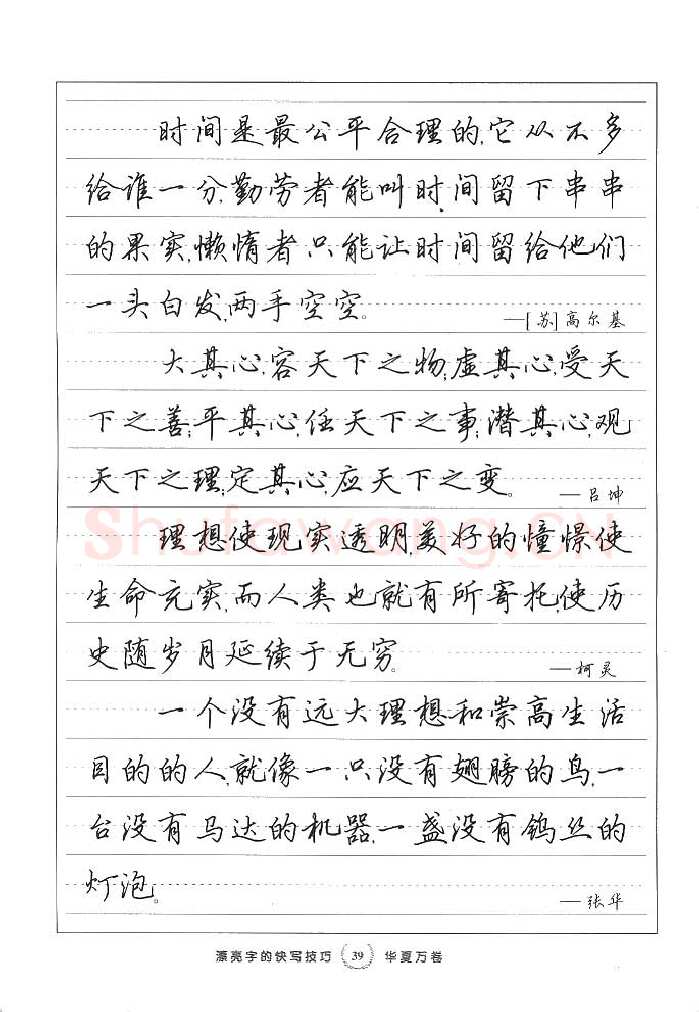 时间是最公平合理的,它从不多
给谁一分,勤劳者能叫时间留下串串
的果实,懒惰者只能让时间留给他们
一头白发,两手空空。
—[苏]高尔基
大其心,容天下之物;虚其心,受天
下之善;平其心,任天下之事;潜其心,观
天下之理;定其心,应天下之变。
—吕坤
理想使现实透明,美好的憧憬使
生命充实,而人类也就有所寄托,使历
史随岁月延续于无穷。
—柯灵
一个没有远大理想和崇高生活
目的的人,就像一只没有翅膀的鸟,一
台没有马达的机器,一盏没有钨丝的
灯泡。
—张华
漂亮字的快写技巧 39 华夏万卷
Shufawang.CN